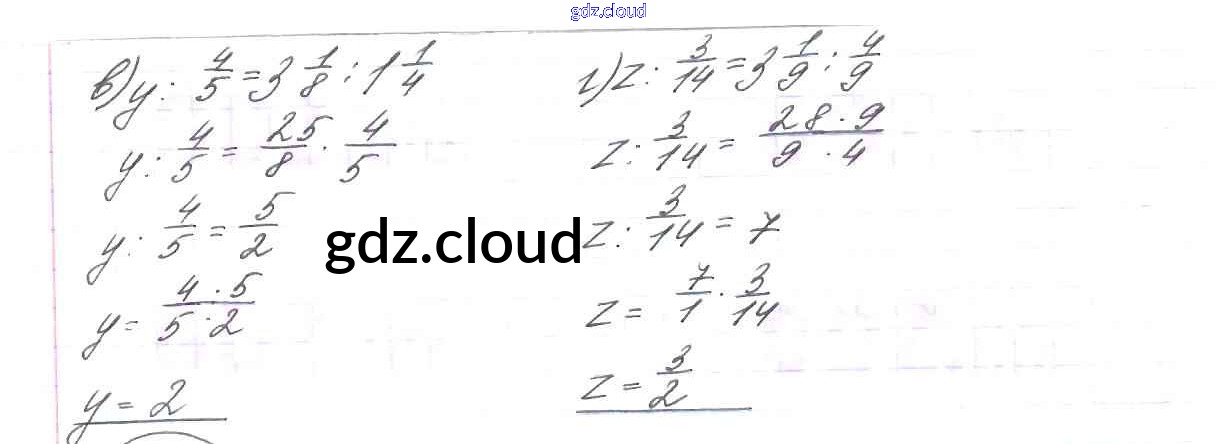 gdz.cloud
в) y : 4/5 = 3 1/8 : 1 1/4
y : 4/5 = 25/8 · 4/5
y : 4/5 = 5/2
y = 4 · 5 / 5 · 2
y = 2
г) z : 3/14 = 3 1/9 : 4/9
z : 3/14 = 28 · 9 / 9 · 4
z : 3/14 = 7
z = 7/1 · 3/14
z = 3/2
gdz.cloud